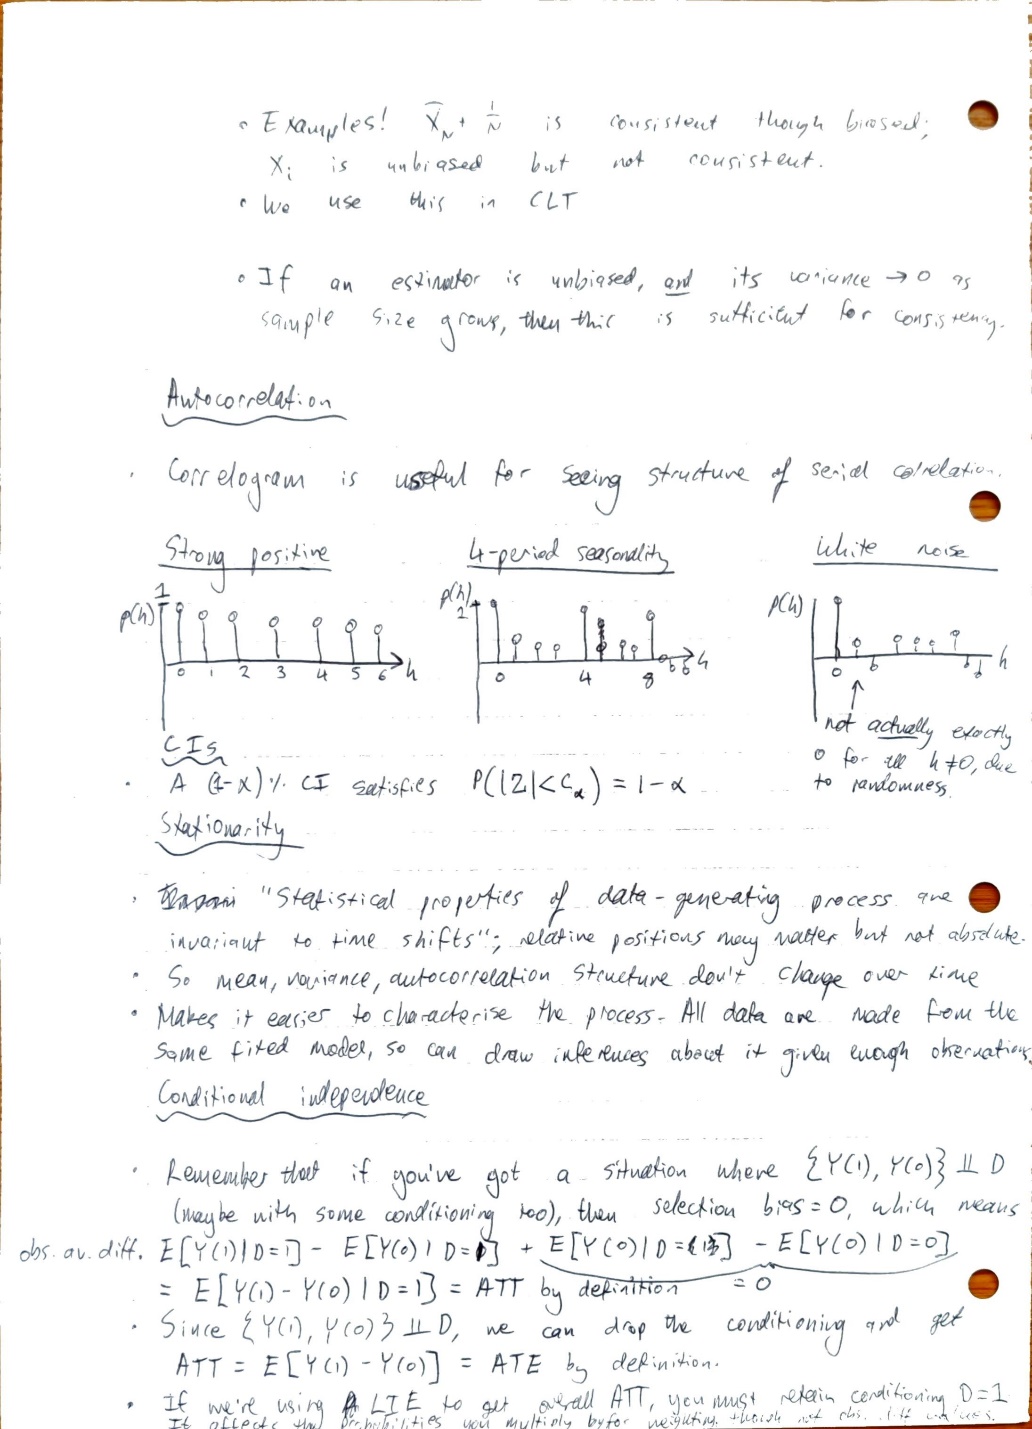 ◦ Examples! X̄_N + 1/N is consistent though biased;
X_i is unbiased but not consistent.
◦ We use this in CLT
◦ If an estimator is unbiased, and its variance → 0 as
sample size grows, then this is sufficient for consistency.
Autocorrelation
· Correlogram is useful for seeing structure of serial correlation.
Strong positive 4-period seasonality White noise
1
ρ(h) ρ(h) ρ(h)
1
0 1 2 3 4 5 6 h 0 4 8 h 0 h
not actually exactly
0 for all h≠0, due
to randomness.
CIs
· A (1-α)% CI satisfies P(|Z|<C_α) = 1-α
Stationarity
· "Statistical properties of data-generating process are
invariant to time shifts"; relative positions may matter but not absolute.
· So mean, variance, autocorrelation structure don't change over time
· Makes it easier to characterise the process. All data are made from the
same fixed model, so can draw inferences about it given enough observations
Conditional independence
· Remember that if you've got a situation where {Y(1), Y(0)} ⫫ D
(maybe with some conditioning too), then selection bias = 0, which means
obs. av. diff. E[Y(1)|D=1] - E[Y(0)|D=1] + E[Y(0)|D=1] - E[Y(0)|D=0]
= E[Y(1) - Y(0)|D=1] = ATT by definition = 0
· Since {Y(1), Y(0)} ⫫ D, we can drop the conditioning and get
ATT = E[Y(1) - Y(0)] = ATE by definition.
· If we're using LIE to get overall ATT, you must retain conditioning D=1
It affects the probabilities you multiply by for weighting, though not obs. diff values.